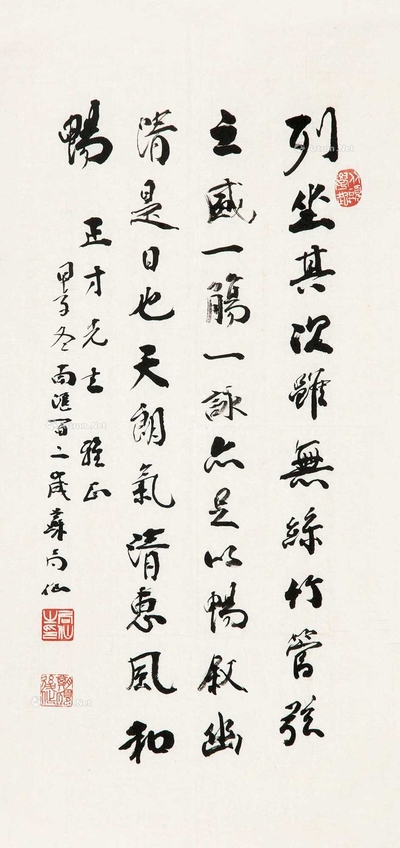 列坐其次雖無絲竹管弦
之盛一觴一詠亦足以暢敘幽
情是日也天朗氣清惠風和
暢
正才先生雅正
甲子冬南匯百二歲蘇局仙